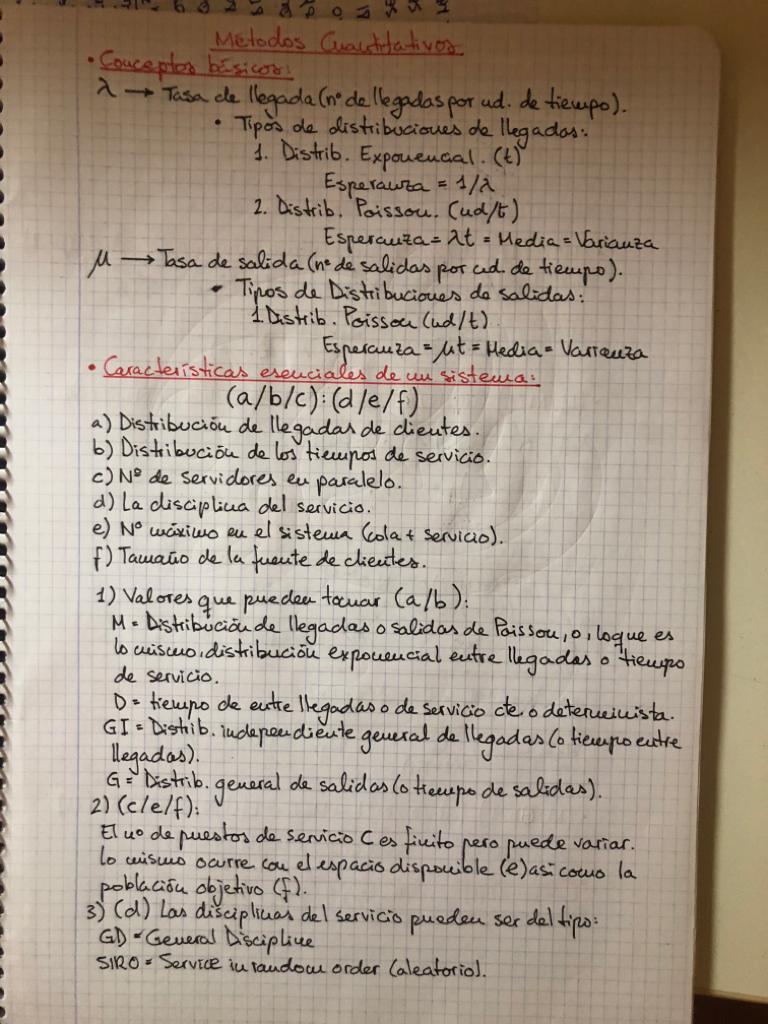 Métodos Cuantitativos
• Conceptos básicos:
λ → Tasa de llegada (nº de llegadas por ud. de tiempo).
• Tipos de distribuciones de llegadas:
1. Distrib. Exponencial. (t)
Esperanza = 1/λ
2. Distrib. Poisson. (ud/t)
Esperanza = λt = Media = Varianza
μ → Tasa de salida (nº de salidas por ud. de tiempo).
• Tipos de Distribuciones de salidas:
1. Distrib. Poisson (ud/t)
Esperanza = μt = Media = Varianza
• Características esenciales de un sistema:
(a/b/c):(d/e/f)
a) Distribución de llegadas de clientes.
b) Distribución de los tiempos de servicio.
c) Nº de servidores en paralelo.
d) La disciplina del servicio.
e) Nº máximo en el sistema (cola + servicio).
f) Tamaño de la fuente de clientes.
1) Valores que pueden tomar (a/b):
M = Distribución de llegadas o salidas de Poisson, o, lo que es
lo mismo, distribución exponencial entre llegadas o tiempo
de servicio.
D = tiempo de entre llegadas o de servicio cte. o determinista.
GI = Distrib. independiente general de llegadas (o tiempo entre
llegadas).
G = Distrib. general de salidas (o tiempo de salidas).
2) (c/e/f):
El nº de puestos de servicio C es finito pero puede variar.
Lo mismo ocurre con el espacio disponible (e) asi como la
población objetivo (f).
3) (d) Las disciplinas del servicio pueden ser del tipo:
GD = General Discipline
SIRO = Service in random order (aleatorio).